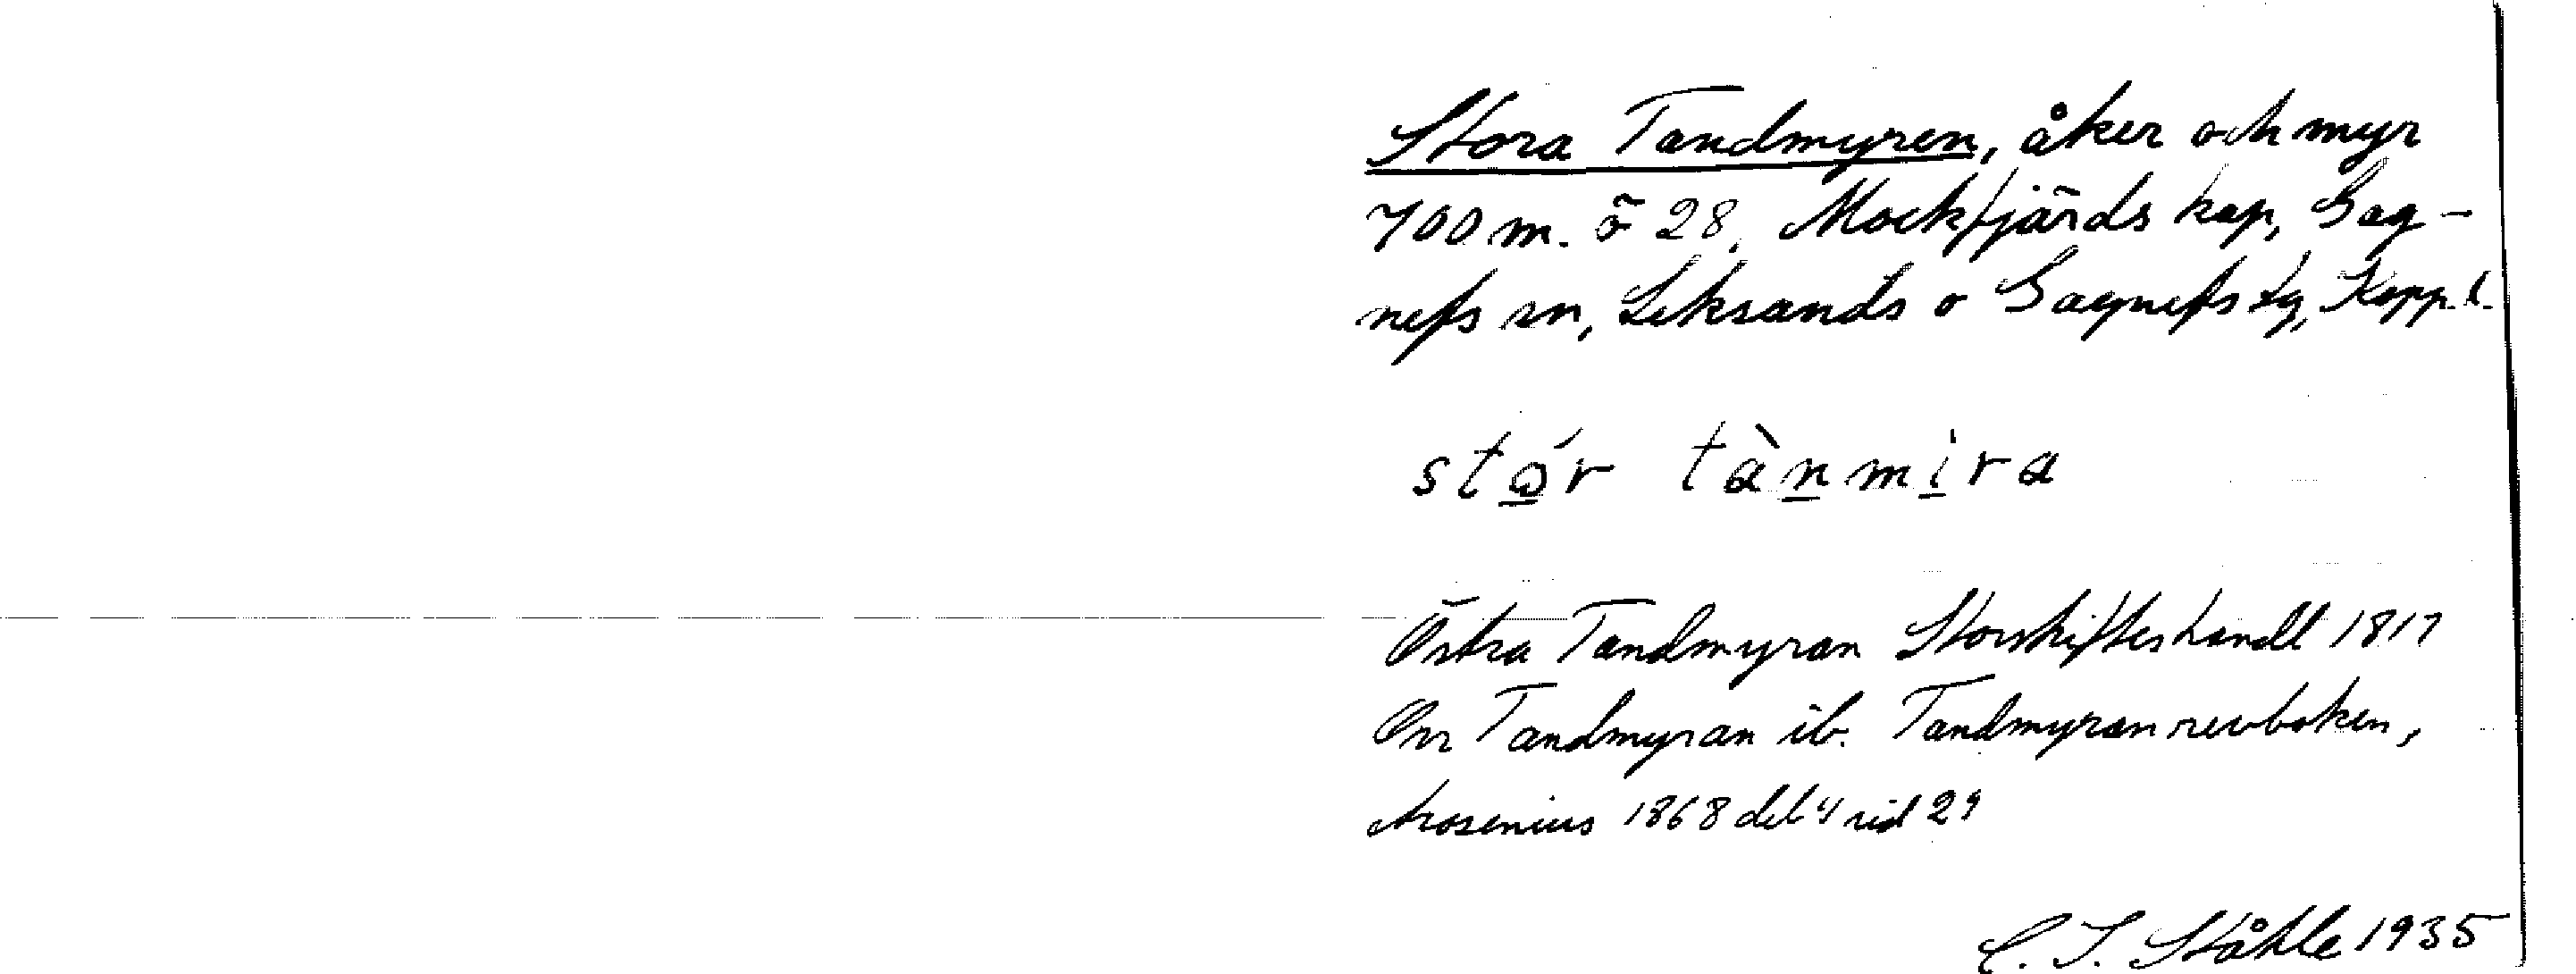 Stora Tandmyren, åker och myr
700 m. ö 28, Mockfjärds kap, Gag-
nefs sn, Leksands o Gagnefs tg, Kopp. l.
stọ́r tàn̲mi̲ra
Östra Tandmyran Storskifteshandl 1817
Övr Tandmyran ib. Tandmyran revboken,
Arosenius 1868 del 4 sid 29
C. I. Ståhle 1935